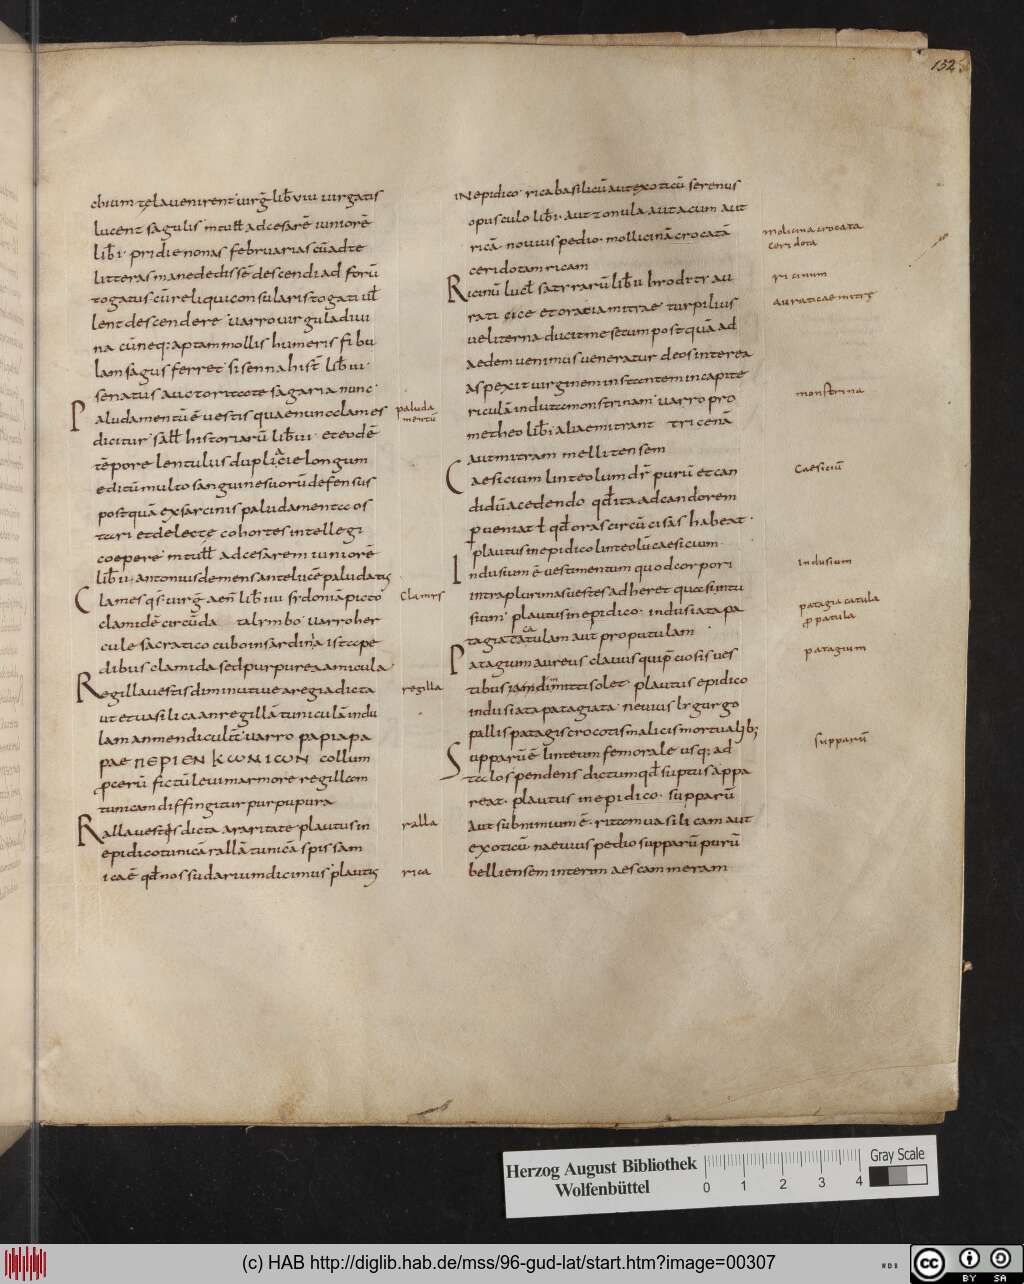 152
chium tela uenirent uirg̅ lib̅ viii uirgatis
lucent sagulis m tull̅ ad cesarē iuniorē
lib̅ i pridie nonas februarias cū ad te
litteras manededissē descendi ad forū
togatus cū reliqui consularis togati uell̅
lent descendere uarro uirgula diui
na cū neq: aptam mollis humeris fibu
lam sagus ferret sisenna hist̅ lib̅ iii
senatus auctoritate sagaria nunc
Paludamentū ē uestis quae nunc clames
paluda
mentū
dicitur sall̅ historiarū lib̅ iii et eodē
tēpore lentulus duplici acie longum
editū multo sanguine suorū defensus
postquā ex sarcinis paludamenta os
tari et delecte cohortes intellegi
coepere m tull̅ ad cesarem iuniorē
lib̅ ii antonius demens ante lucē paludatus
Clames qs̅ uirg̅ aen̅ lib̅ iiii sydoniā picto
Clamys
clamidē circūda talymbo uarro her
cule sacratico cubo in sardinia istope
dibus clamida sed purpurea amicula
Regilla uestis diminutiue a regia dicta
regilla
ut et uasilica an regillā tuniculā indu
lam an mendiculā uarro papia pa
pae ΠΕΡΙΕΝ ΚωΝΙCωΝ collum
procerū fictū leui marmore regillam
tunicam diffingitur purpupura
Ralla uestis dicta a raritate plautus in
ralla
epidico tunicā rallā tunicā spissam
icaē qd̅ nos sudarium dicimus plautus
rica
IN epidico rica basilicū aut exoticū serenus
opusculo lib̅ i aut zonula aut acum aut
ricā nouius pedio mollicinā crocatā
molicina crocata
ceridotam ricam
ceridota
Ricinū lucl̅ satyrarū lib̅ ii hrodityr au
ricinum
rati cice et oracia mitrae turpilius
auraticae mitrę
ueliterna ducit me secum postquā ad
aedem uenimus ueneratur deos interea
aspexit uirginem instantem in capite
riculā induta monstrinam uarro pro
monstrina
metheo lib̅ i aliae mitrant tricenā
aut mitram mellitensem
Caesicium linteolum dr̅ purū et can
Caesiciū
didū a cedendo qd̅ ita ad candorem
pueniat ł qd̅ oras circūcisas habeat
plautus in epidico linteolū caesicium
Indusium ē uestimentum quod corpori
Indusium
intra plurimas uestes adheret quasi intu
sium plautus in epidico indusiata pa
patagia catula
tagia catulam aut proputulam
p̱patula
Patagium aureus clauus qui p̅ciosis ues
patagium
tibus immitti solet plautus epidico
indusiata patagiata neuius lygurgo
pallis patagis crocotis malicis mortualib;
Supparū ē linteum femorale usq: ad
supparū
talos pendens dictum qd̅ suptus appa
reat plautus in epidico supparū
aut subnimium ē ritam uasilicam aut
exoticū naeuius pedio supparū purū
belliensem interim aescam meram
Herzog August Bibliothek
Wolfenbüttel
0 1 2 3 4
Gray Scale
(c) HAB http://diglib.hab.de/mss/96-gud-lat/start.htm?image=00307
WDB
cc BY SA